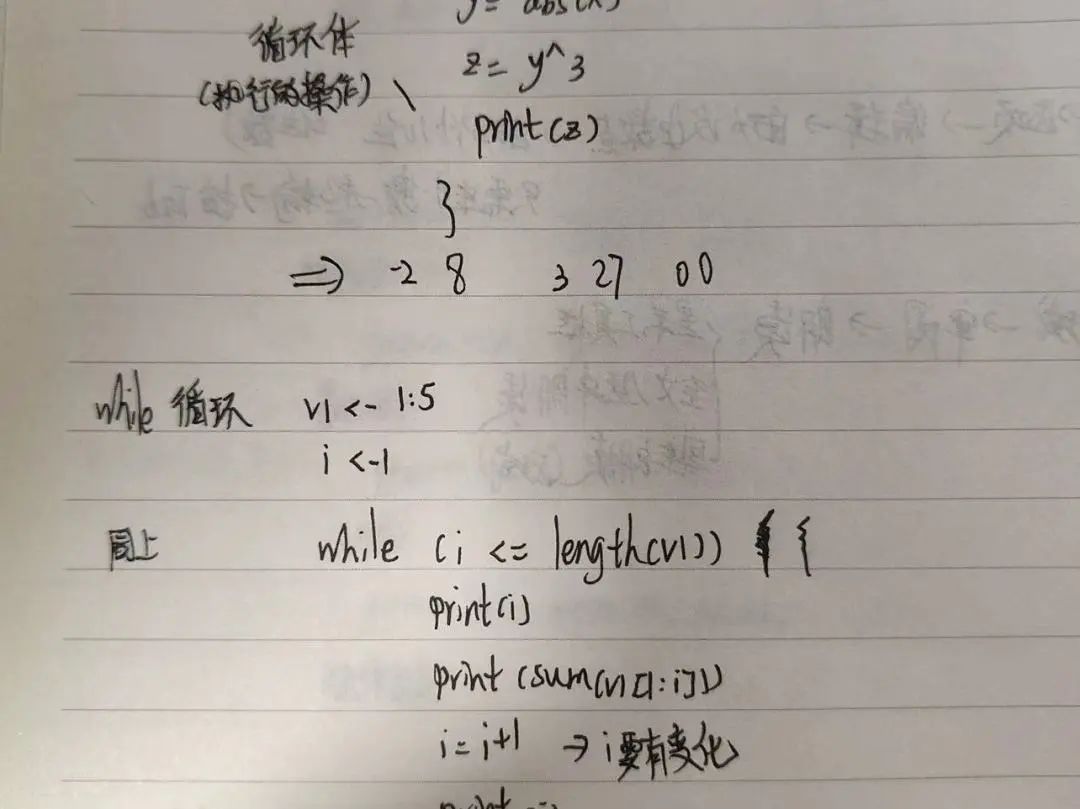 y = abs(x)
循环体
z = y^3
(执行的操作) \
print(z)
}
⇒ -2 8 3 27 0 0
while 循环 v1 <- 1:5
i <- 1
同上 while (i <= length(v1)) {
print(i)
print(sum(v1[1:i]))
i = i+1 → i要有变化